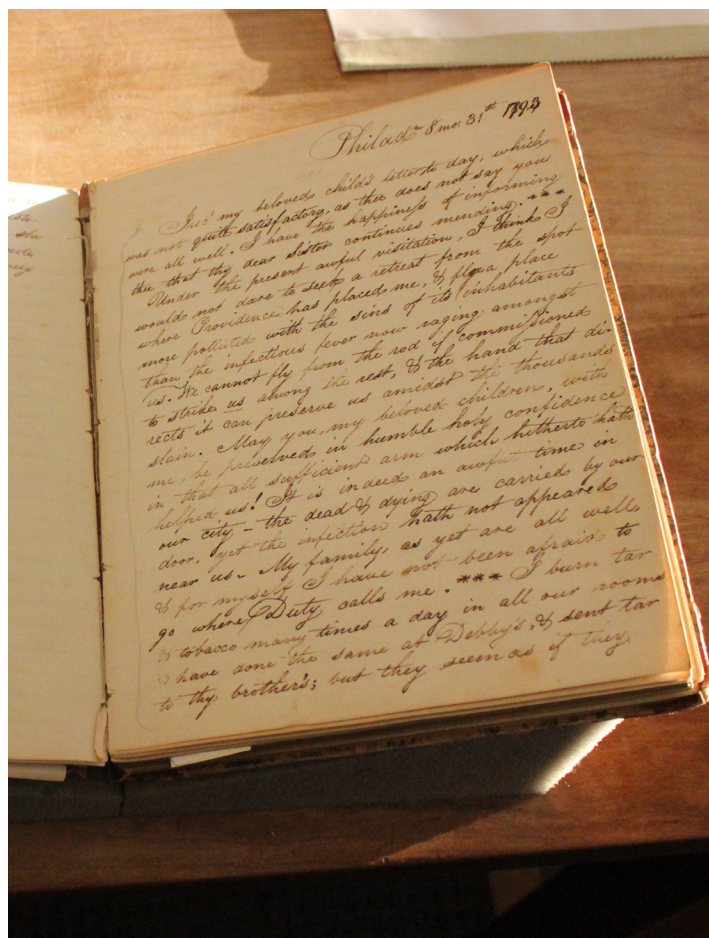 Philad^a 8 mo. 31st 1793
Rec^d my beloved child's letter to day, which
was not quite satisfactory, as thee does not say you
were all well. I have the happiness of informing
thee that thy dear Sister continues mending. ***
Under the present awful visitation, I think I
would not dare to seek a retreat from the spot
where Providence has placed me, & flee a place
more polluted with the sins of its inhabitants
than the infectious fever now raging amongst
us. We cannot fly from the rod if commissioned
to strike us among the rest, & the hand that di-
rects it can preserve us amidst the thousands
slain. May you, my beloved children, with
me, be preserved in humble holy confidence
in that all sufficient arm which hitherto hath
helped us! It is indeed an awful time in
our city – the dead & dying are carried by our
door, yet the infection hath not appeared
near us. My family, as yet are all well,
& for myself I have not been afraid to
go where Duty calls me. *** I burn tar
& tobacco many times a day in all our rooms
& have done the same at Debby's, & sent tar
to thy brother's; but they seem as if they